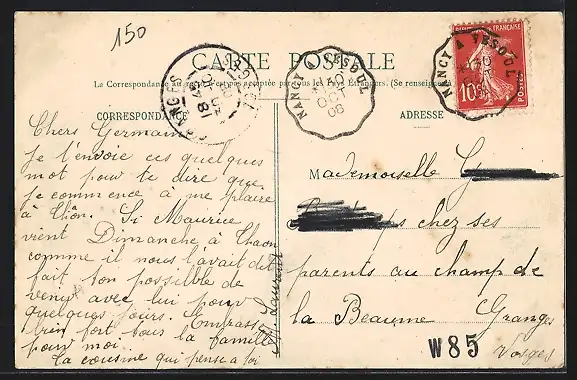 150
CARTE POSTALE
La Correspondance au recto n'est pas acceptée par tous les Pays Étrangers. (Se renseigner à
CORRESPONDANCE
ADRESSE
NANCY À VESOUL
OCT
08
NANCY À VESOUL
RÉPUBLIQUE FRANÇAISE
10
POSTES
GRANGES
VOSGES
18
Chers Germain
Je t'envoie ces quelques
mot pour te dire que
je commence à me plaire
à Chôn. Si Maurice
vient Dimanche à Chaon
comme il nous l'avait dit
fait ton possible de
venir avec lui pour
quelques jours. Embrasse
bien fort tous la famille
pour moi.
ta cousine qui pense a toi
Laurent
Mademoiselle G
chez ses
parents au champ de
la Beaume Granges
Vosges
W85